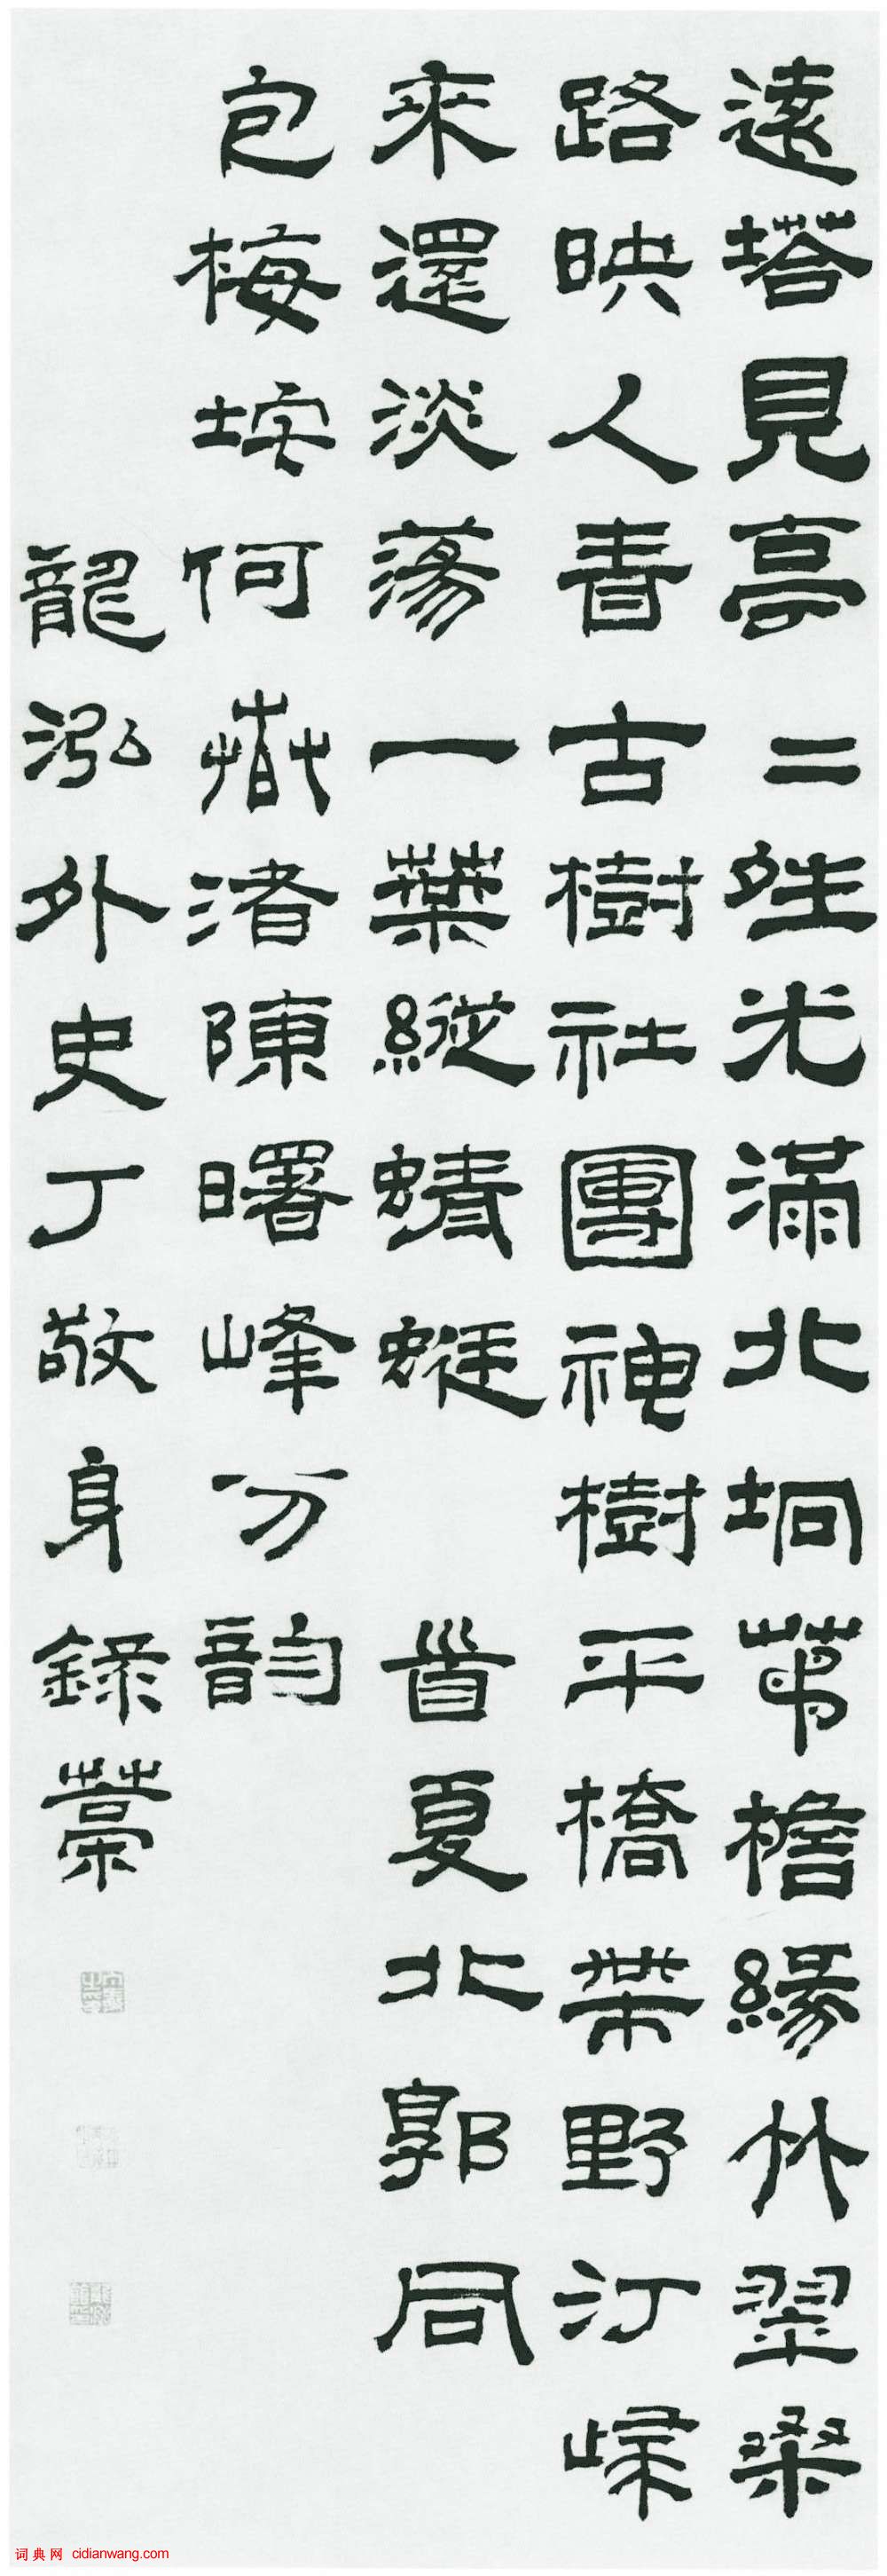 遠塔見亭二夝光滿北坰茆檐緣竹翠桑
路映人青古樹社團神樹平橋帶野汀歸
來還淡蕩一葉縱蜻蜓 首夏北郭同
包梅垞何春渚陳曙峰分韵
龍泓外史丁敬身錄藁
词典网 cidianwang.com